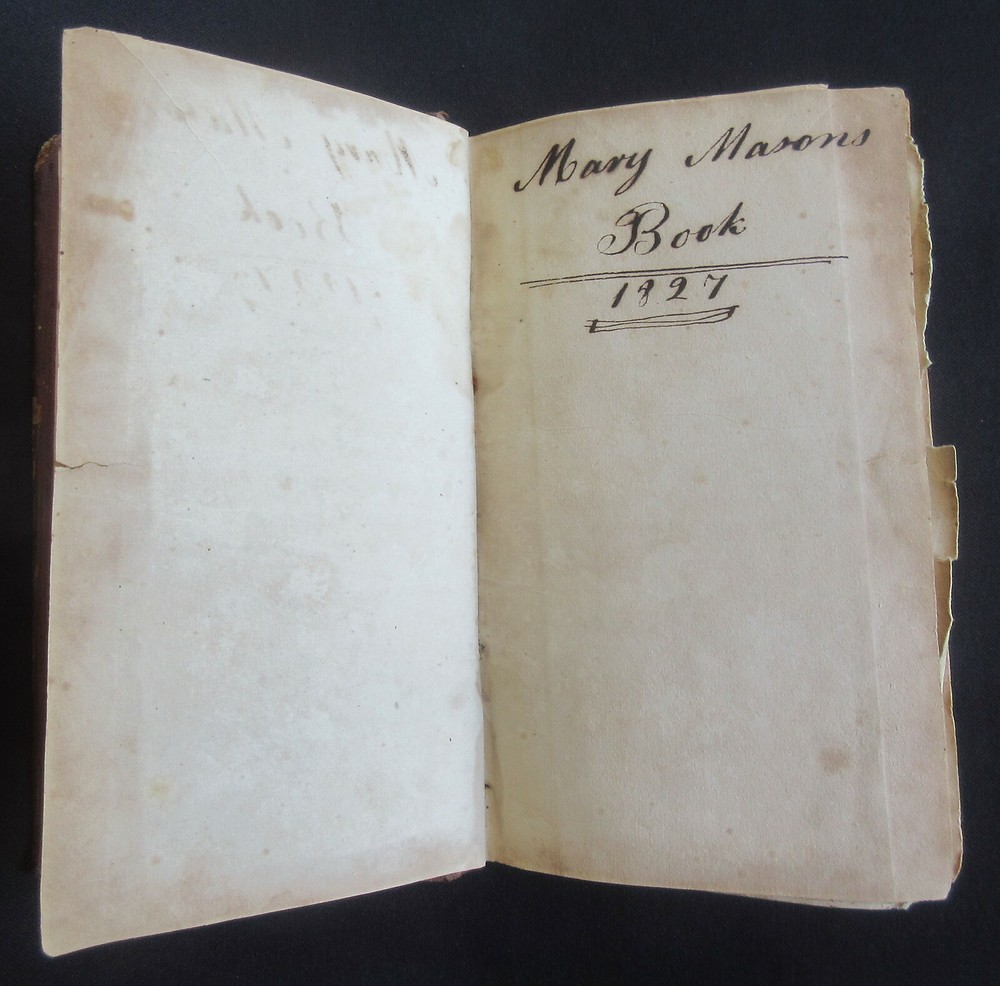 Mary Masons
Book
1827